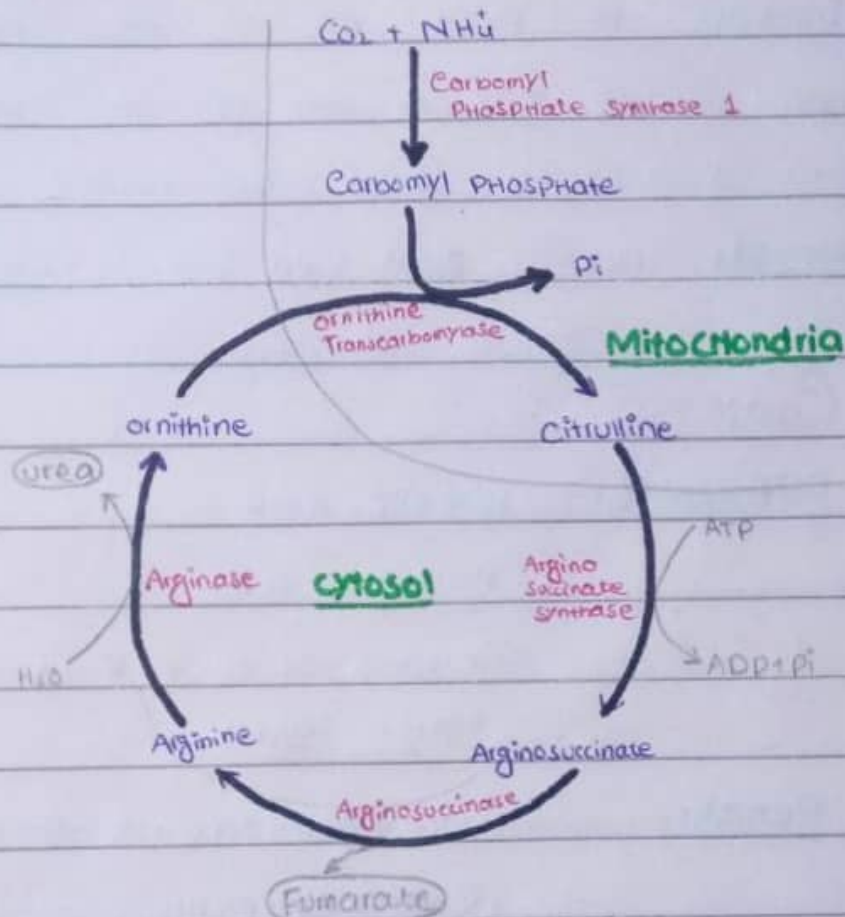 CO2 + NH4+
Carbomyl
PHOSPHate synthase 1
Carbomyl PHOSPHATE
Pi
Ornithine
Transcarbomylase
MitocHondria
ornithine
Citrulline
urea
ATP
Arginase
cytosol
Argino
succinate
synthase
H2O
ADP+Pi
Arginine
Arginosuccinate
Arginosuccinase
Fumarate